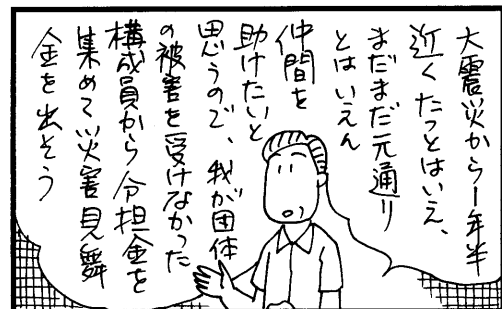 大震災から1年半
近くたつとはいえ、
まだまだ元通り
とはいえん
仲間を
助けたいと
思うので、我が団体
の被害を受けなかった
構成員から分担金を
集めて災害見舞
金を出そう